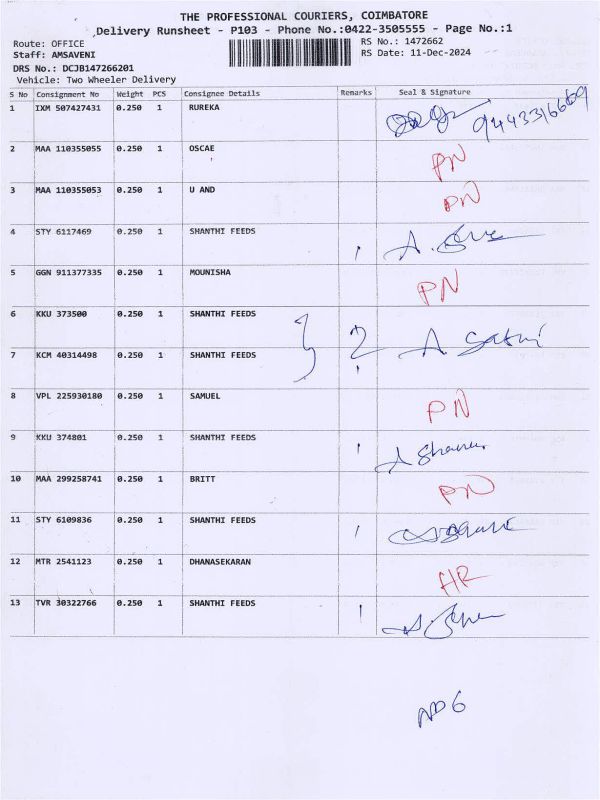 THE PROFESSIONAL COURIERS, COIMBATORE
Delivery Runsheet - P103 - Phone No.:0422-3505555 - Page No.:1
Route: OFFICE RS No.: 1472662
Staff: AMSAVENI RS Date: 11-Dec-2024
DRS No.: DCJB147266201
Vehicle: Two Wheeler Delivery
S No Consignment No Weight PCS Consignee Details Remarks Seal & Signature
1 IXM 507427431 0.250 1 RUREKA 9443316669
2 MAA 110355055 0.250 1 OSCAE PN
3 MAA 110355053 0.250 1 U AND PN
4 STY 6117469 0.250 1 SHANTHI FEEDS 1
5 GGN 911377335 0.250 1 MOUNISHA PN
6 KKU 373500 0.250 1 SHANTHI FEEDS 2
7 KCM 40314498 0.250 1 SHANTHI FEEDS
8 VPL 225930180 0.250 1 SAMUEL PN
9 KKU 374801 0.250 1 SHANTHI FEEDS 1
10 MAA 299258741 0.250 1 BRITT PN
11 STY 6109836 0.250 1 SHANTHI FEEDS 1
12 MTR 2541123 0.250 1 DHANASEKARAN HR
13 TVR 30322766 0.250 1 SHANTHI FEEDS 1